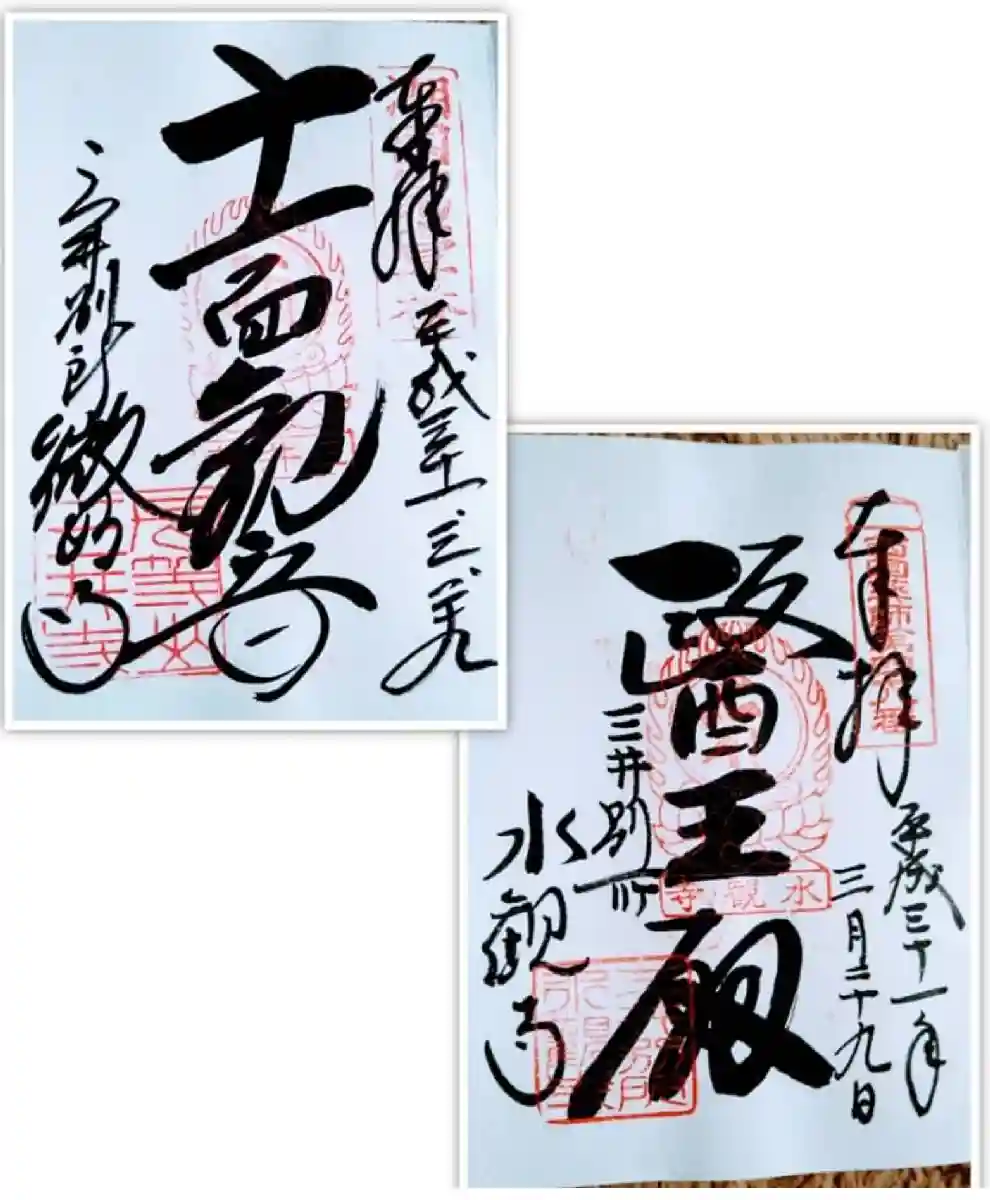 奉拝
平成三十一.三.二九
十一面観音
三井別所
微妙寺
奉拝
平成三十一年
三月二十九日
醫王殿
三井別所
水観寺
水觀寺